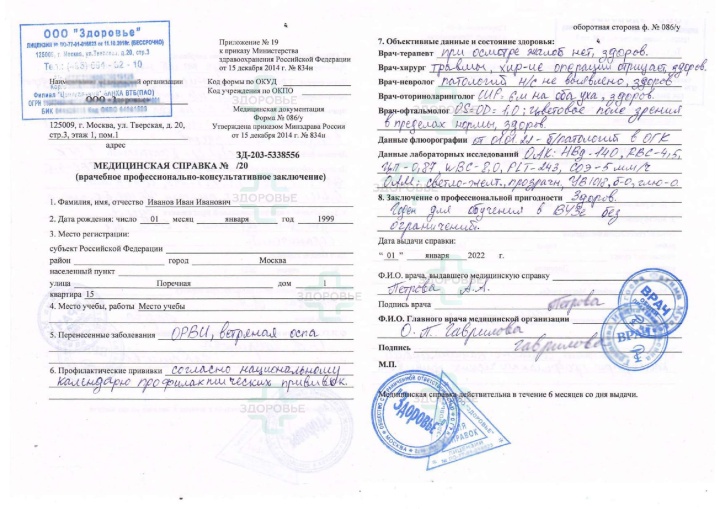 4
ООО "Здоровье"
125009, г. Москва, ул.Тверская, д.20, стр.3
организации
ООО «Здоровье»
125009, г. Москва, ул. Тверская, д. 20,
стр.3, этаж 1, пом.1
адрес
Приложение № 19
к приказу Министерства
здравоохранения Российской Федерации
от 15 декабря 2014 г. № 834н
Код формы по ОКУД
Код учреждения по ОКПО
Медицинская документация
Форма № 086/у
Утверждена приказом Минздрава России
от 15 декабря 2014 г. № 834н
ЗД-203-5338556
МЕДИЦИНСКАЯ СПРАВКА № /20
(врачебное профессионально-консультативное заключение)
1. Фамилия, имя, отчество Иванов Иван Иванович
2. Дата рождения: число 01 месяц января год 1999
3. Место регистрации:
субъект Российской Федерации
район город Москва
населенный пункт
улица Поречная дом 1
квартира 15
4. Место учебы, работы Место учебы
5. Перенесенные заболевания ОРВИ, ветряная оспа
6. Профилактические прививки согласно национальному
календарю профилактических прививок.
ЗДОРОВЬЕ
оборотная сторона ф. № 086/у
7. Объективные данные и состояние здоровья: 4
Врач-терапевт при осмотре жалоб нет, здоров.
Врач-хирург травмы, хир-ие операции отрицает, здоров.
Врач-невролог патологий н/с не выявлено, здоров
Врач-оториноларинголог 6м на оба уха, здоров.
Врач-офтальмолог OS=OD= 1.0; цветовое поле зрения
в пределах нормы, здоров.
Данные флюорографии от 01.01.21 - б/патологий в ОГК
Данные лабораторных исследований ОАК: HBg-140, RBC-4,5,
цп-0,87, WBC-8.0, PLT-243, СОЭ-5 мм/ч
ОАМ: светло-желт, прозрачн,
8. Заключение о профессиональной пригодности Здоров.
Годен для обучения в ВУЗе без
ограничений.
Дата выдачи справки:
“ 01 ” января 2022 г.
Ф.И.О. врача, выдавшего медицинскую справку
Петрова А.А.
Подпись врача Петрова
Ф.И.О. Главного врача медицинской организации
О. П. Гаврилова
Подпись Гаврилова
М.П.
Медицинская справка действительна в течение 6 месяцев со дня выдачи.
ВРАЧ
ВРАЧ
ЗДОРОВЬЕ
МОСКВА